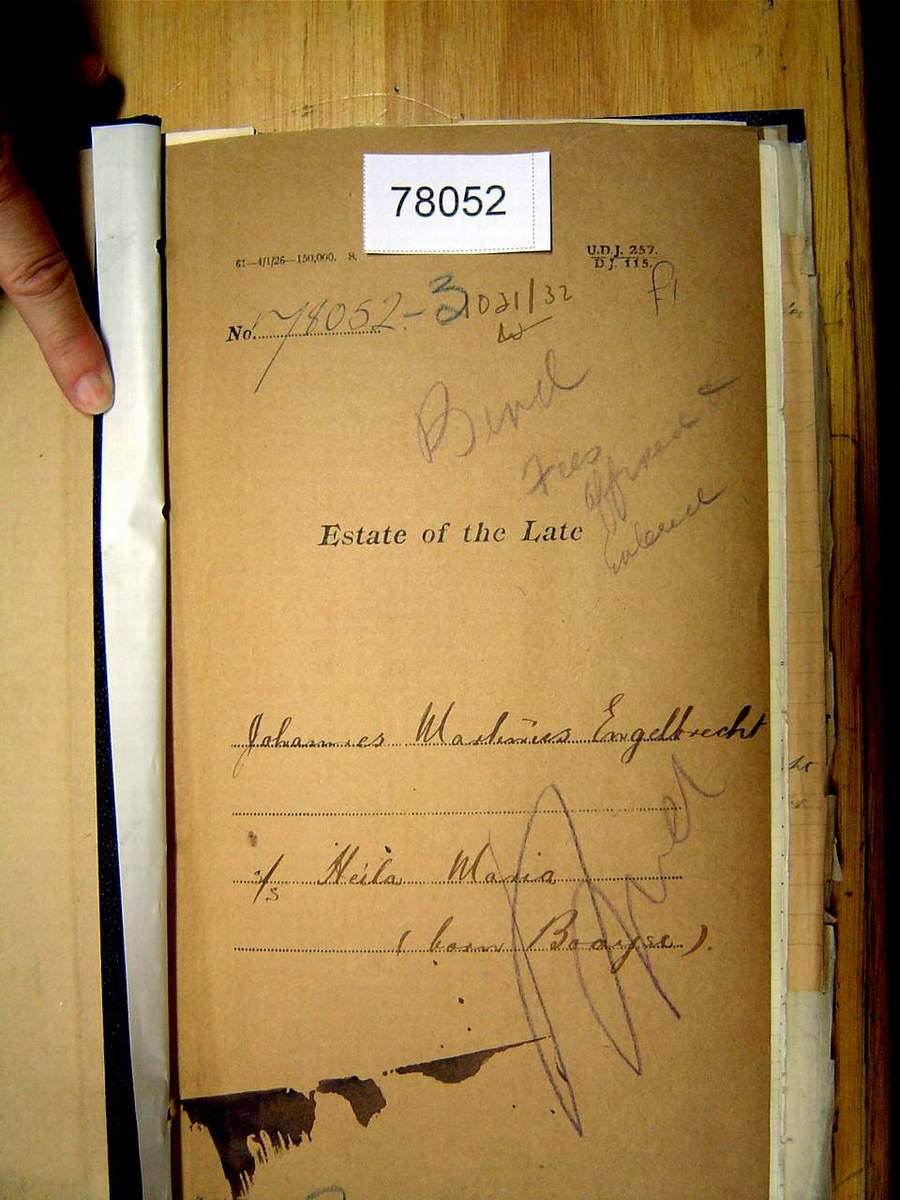 78052
61—4/1/26—150,000. S.
U.D.J. 257.
D.J. 115.
No. 78052-3 1021/32
f1
Bind
Fees
affixed &
Estate of the Late
Johannes Martinus Engelbrecht
s/s Heila Maria
(born Booyse).